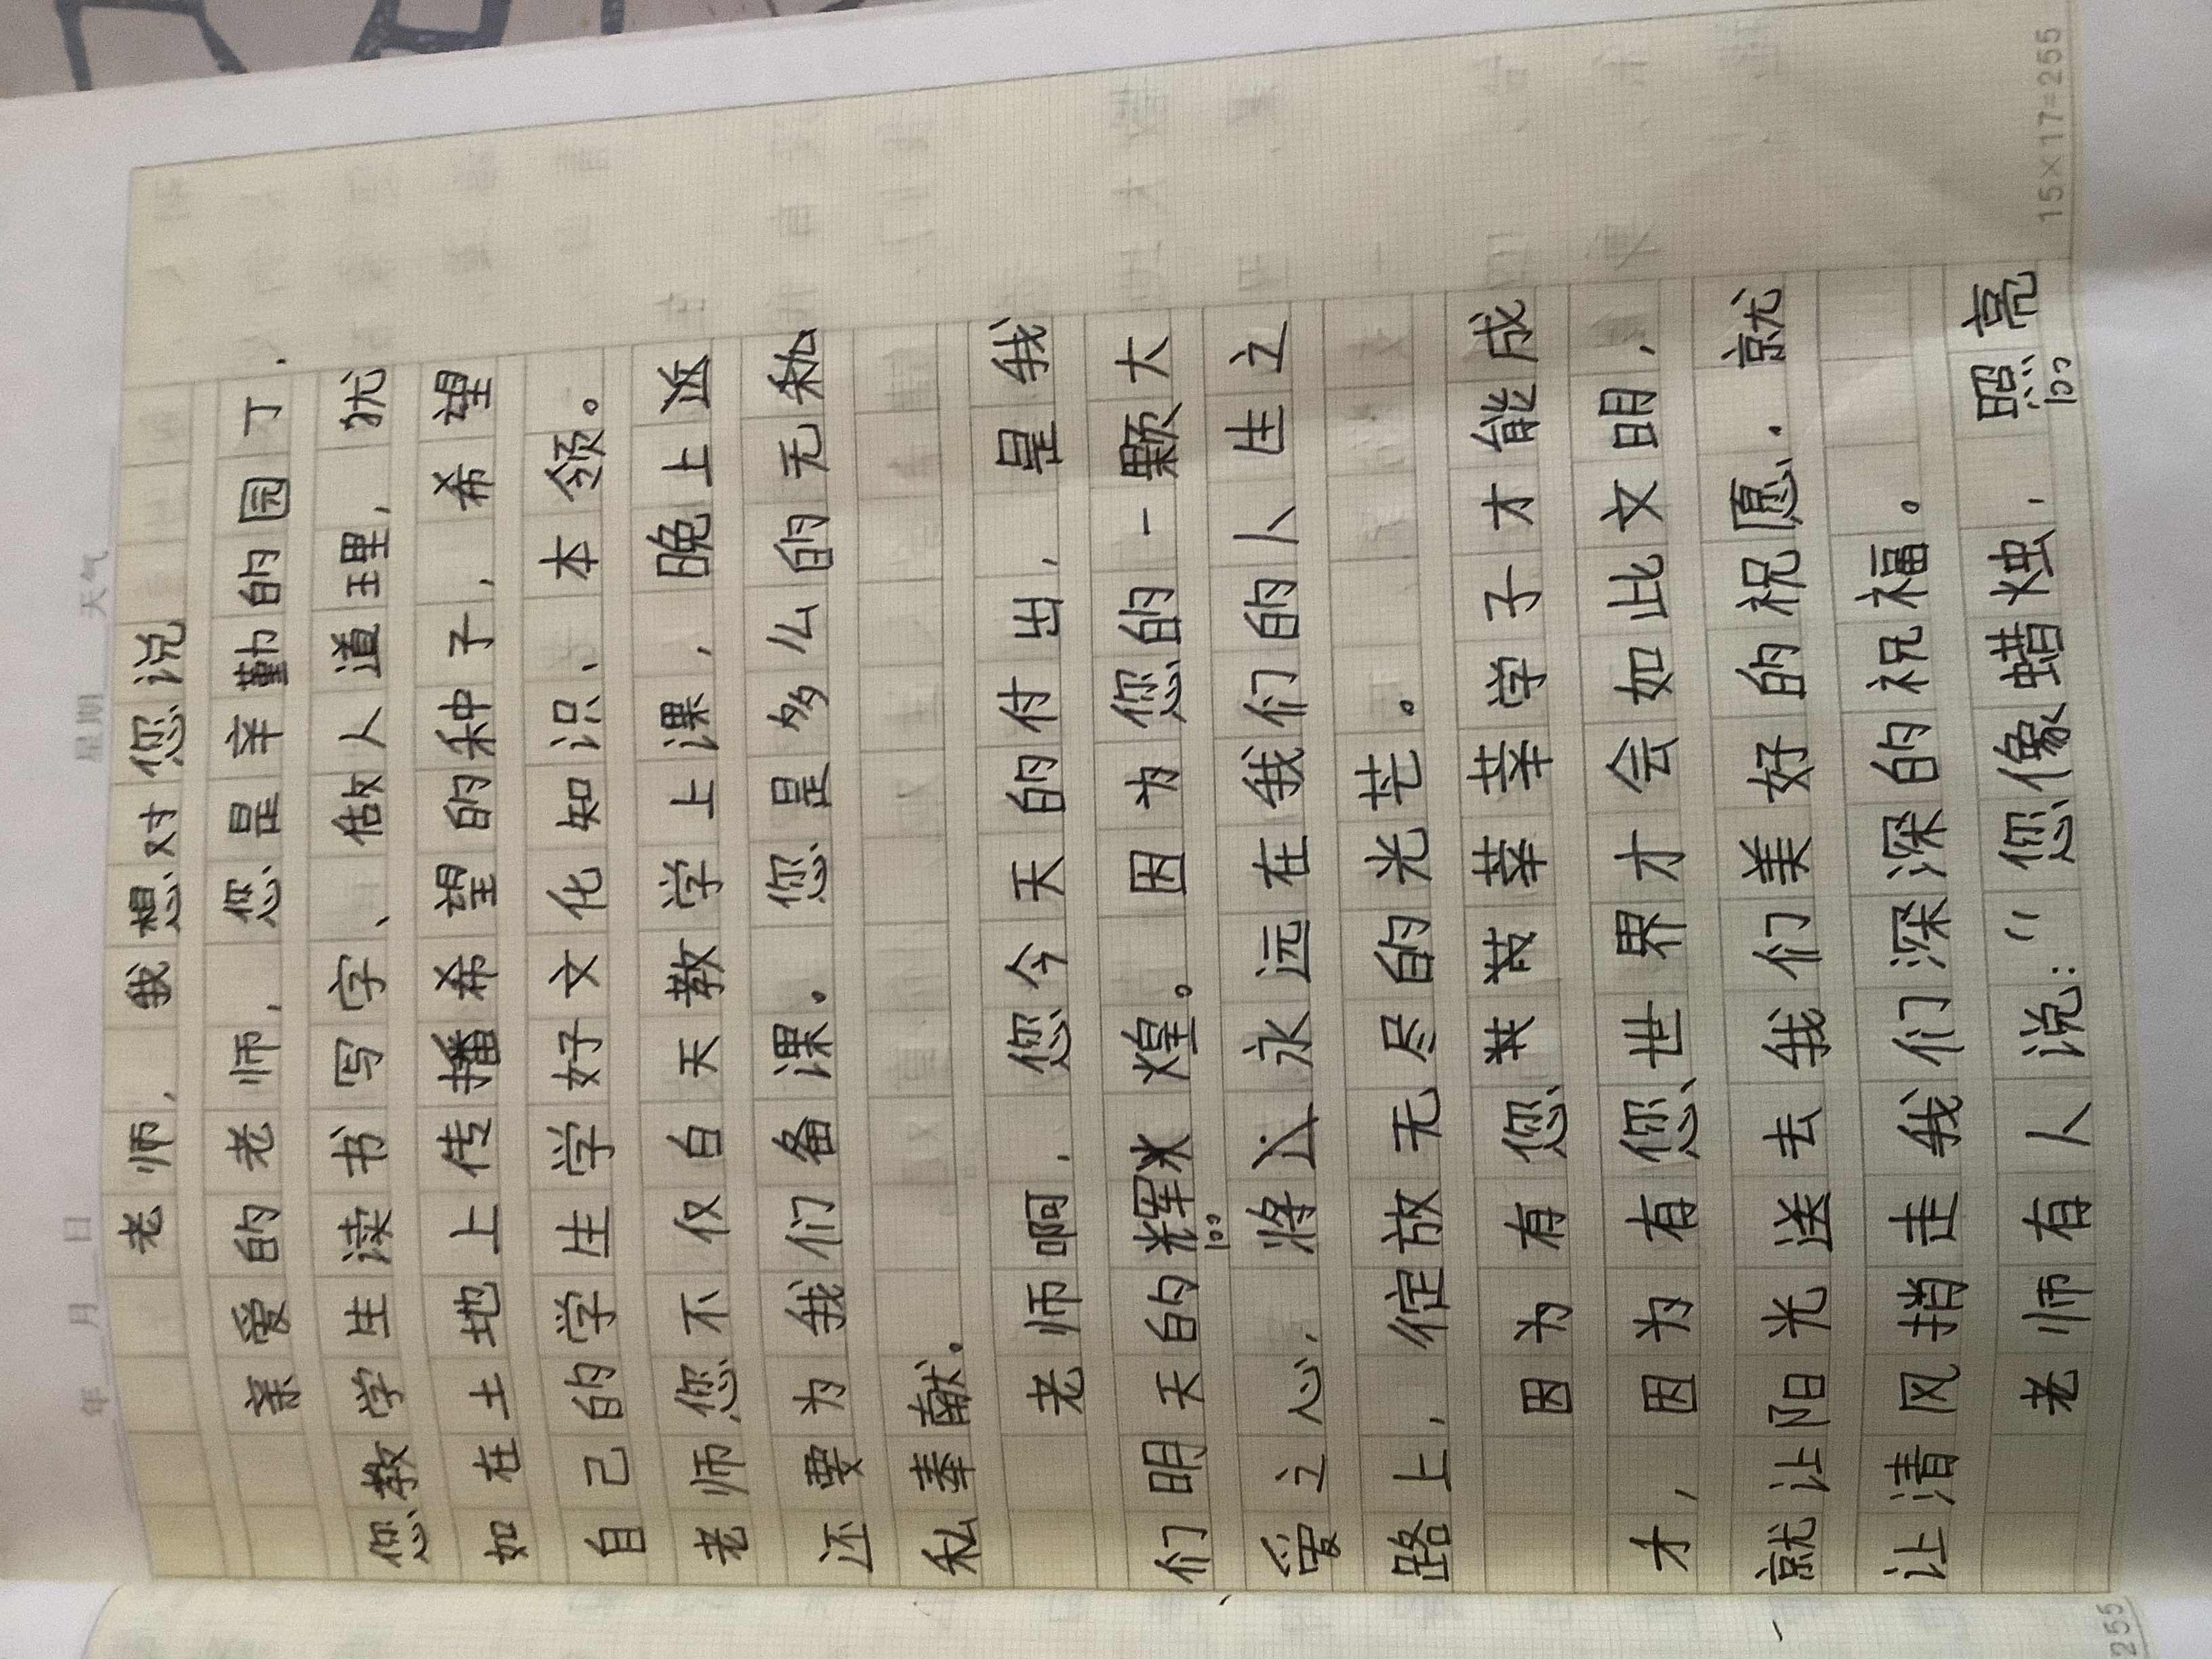 年 月 日 星期 天气
老师，我想对您说
亲爱的老师，您是辛勤的园丁，
您教学生读书写字、做人道理，犹
如在土地上传播希望的种子，希望
自己的学生学好文化知识、本领。
老师，您不仅白天教学上课，晚上
还要为我们备课。您是多么的无私
私奉献。
老师啊，您今天的付出，是我
们明天的辉煌。因为您的一颗大
爱之心，将永远在我们的人生之
路上，绽放无尽的光芒。
因为有您莘莘学子才能成
才，因为有您，世界才会如此文明，
就让阳光送去我们美好的祝愿．就
让清风捎走我们深深的祝福。
老师有人说：“您像蜡烛，照亮
15×17=255
255